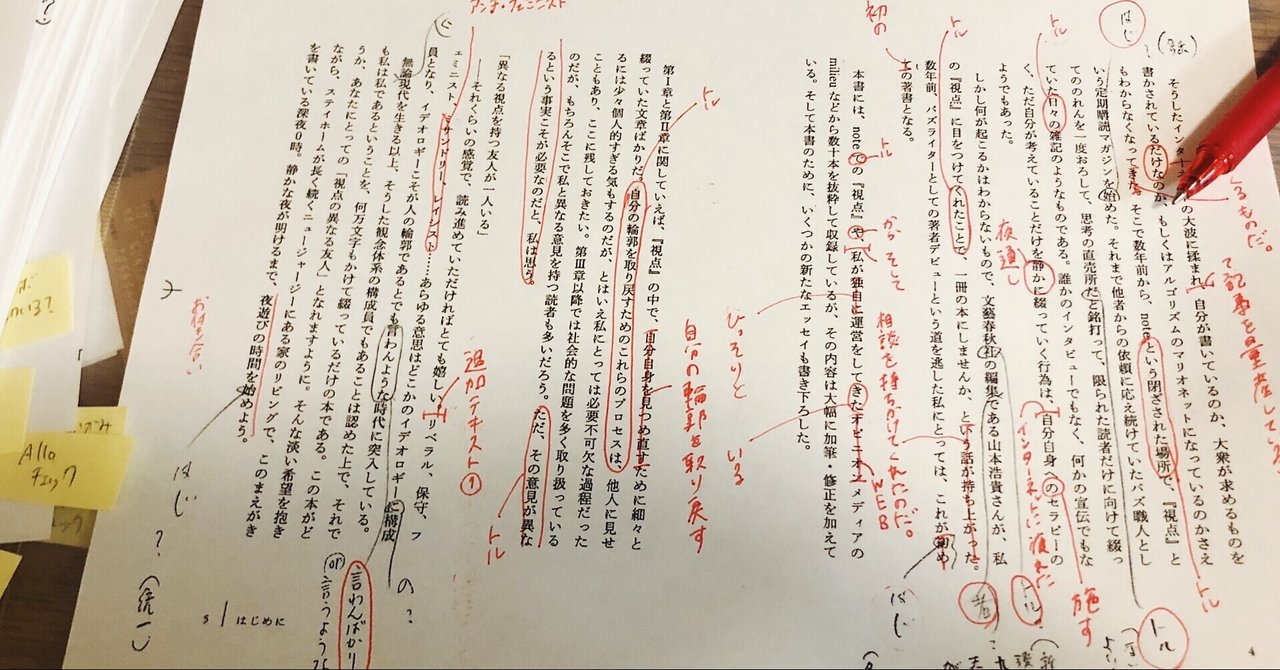 そうしたインターネットの大波に揉まれ、自分が書いているのか、大衆が求めるものを
書かされているだけなのか、もしくはアルゴリズムのマリオネットになっているのかさえ
もわからなくなってきた。そこで数年前から、noteという閉ざされた場所で、『視点』と
いう定期購読マガジンを始めた。それまで他者からの依頼に応え続けていたバズ職人とし
てののれんを一度おろして、思考の直売所だと銘打って、限られた読者だけに向けて綴っ
ていた日々の雑記のようなものである。誰かのインタビューでもなく、何かの宣伝でもな
く、ただ自分が考えていることだけを静かに綴っていく行為は、自分自身のセラピーの
ようでもあった。
しかし何が起こるかはわからないもので、文藝春秋社の編集である山本浩貴さんが、私
の『視点』に目をつけてくれたことで、一冊の本にしませんか、という話が持ち上がった。
数年前、バズライターとしての著者デビューという道を逃した私にとっては、これが初め
ての著書となる。
本書には、noteでの『視点』や、私が独自に運営をしてきたオピニオンメディアの
milieuなどから数十本を抜粋して収録しているが、その内容は大幅に加筆・修正を加えて
いる。そして本書のために、いくつかの新たなエッセイも書き下ろした。
第Ⅰ章と第Ⅱ章に関していえば、『視点』の中で、自分自身を見つめ直すために細々と
綴っていた文章ばかりだ。自分の輪郭を取り戻すためのこれらのプロセスは、他人に見せ
るには少々個人的すぎる気もするのだが、とはいえ私にとっては必要不可欠な過程だった
こともあり、ここに残しておきたい。第Ⅲ章以降では社会的な問題を多く取り扱っている
のだが、もちろんそこで私と異なる意見を持つ読者も多いだろう。ただ、その意見が異な
るという事実こそが必要なのだと、私は思う。
「異なる視点を持つ友人が一人いる」
――それくらいの感覚で、読み進めていただければとても嬉しい。リベラル、保守、フ
ェミニスト、ミサンドリー、レイシスト……あらゆる意思はどこかのイデオロギーに構成
員となり、イデオロギーこそが人の輪郭であるとでも言わんような時代に突入している。
無論現代を生きる以上、そうした観念体系の構成員でもあることは認めた上で、それで
も私は私であるということを、何万文字もかけて綴っているだけの本である。この本がど
うか、あなたにとっての「視点の異なる友人」となれますように。そんな淡い希望を抱き
ながら、ステイホームが長く続くニュージャージーにある家のリビングで、このまえがき
を書いている深夜0時。静かな夜が明けるまで、夜遊びの時間を始めよう。
4
5 はじめに
アンチ・フェミニスト
初の
トル
トル
トル
はじ
るものだ。
て記事を量産してい
夜通し
からそして
相談を持ちかけてくれたのだ。
WEB
インターネットに疲れた
トル
施す
者
トル
トル
はじ
ひっそりと
いる
トル
自分の輪郭を取り戻す
追加テキスト①
トル
お付き合い
はじ
?(統一)
の?
言わんばかり
(or)
言うような
Allo
チェック